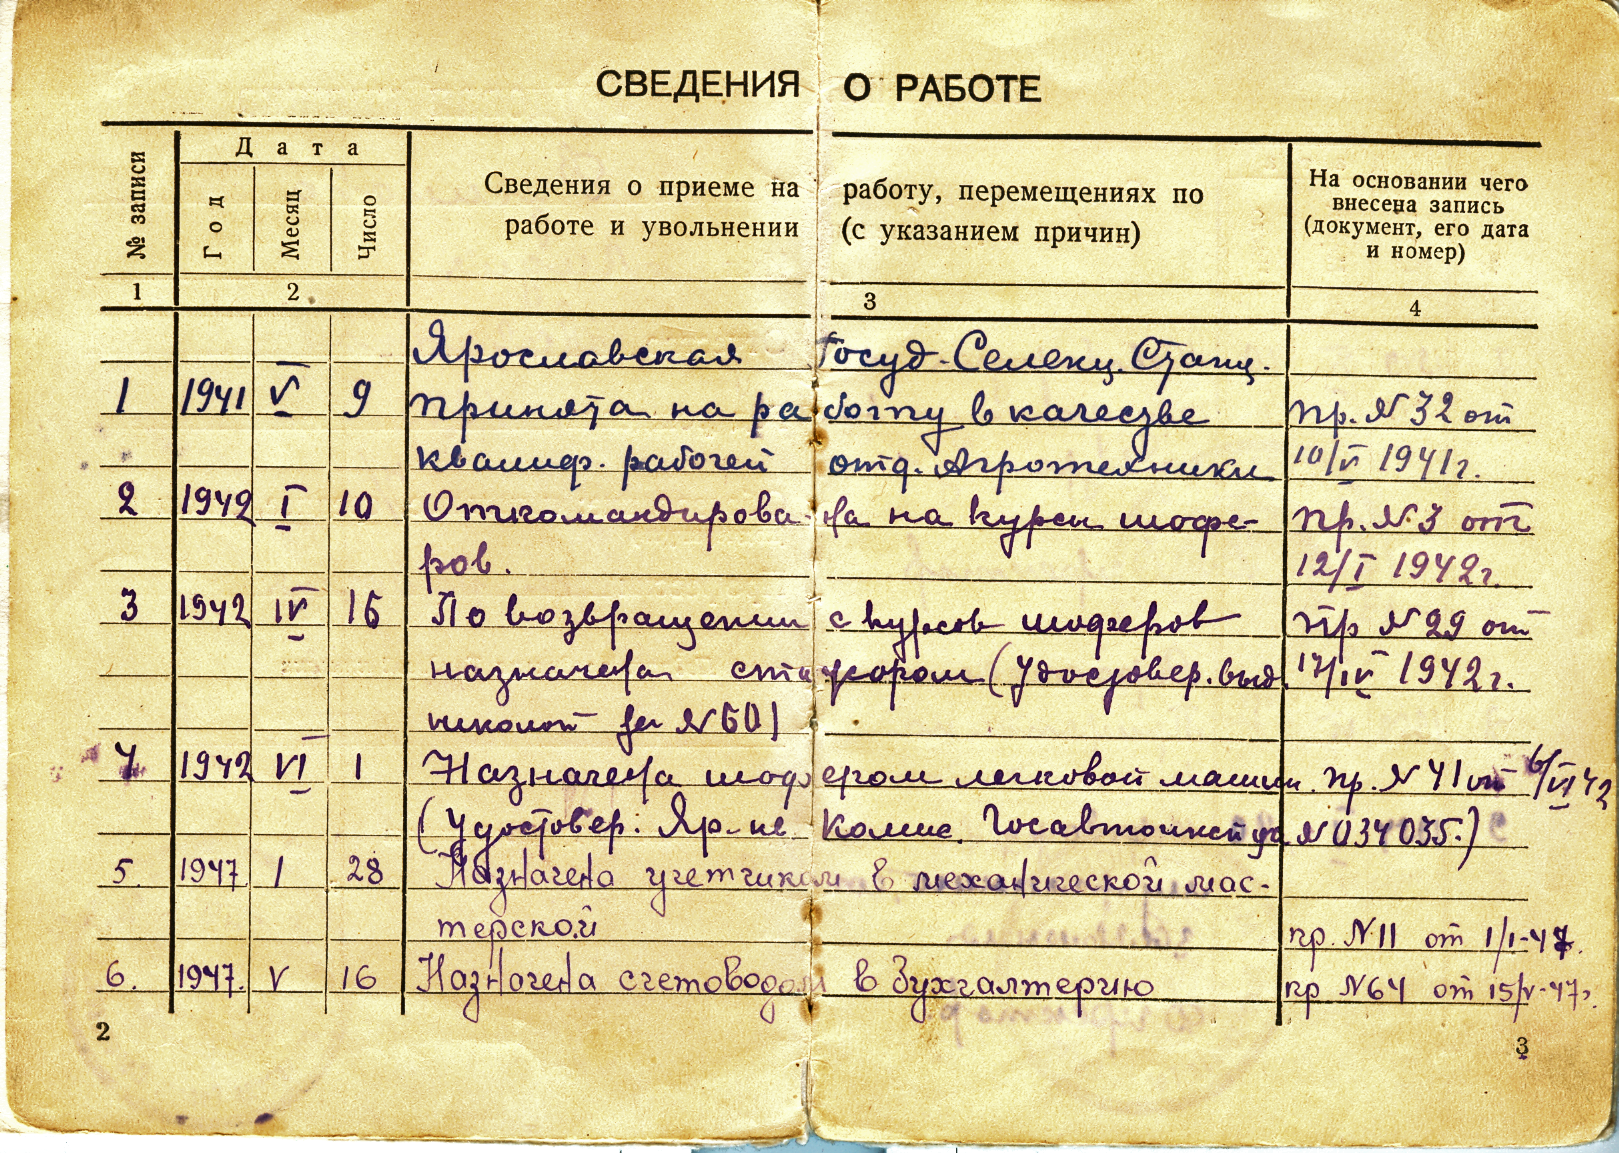 СВЕДЕНИЯ О РАБОТЕ
№ записи
Дата
Год
Месяц
Число
Сведения о приеме на работу, перемещениях по
работе и увольнении (с указанием причин)
На основании чего
внесена запись
(документ, его дата
и номер)
1 2 3 4
Ярославская Госуд. Селекц. Станц.
1 1941 V 9 Принята на работу в качестве пр. № 32 от
квалиф. рабочей отд. Агротехники 10/VI 1941г.
2 1942 I 10 Откомандирована на курсы шофе- пр. № 3 от
ров. 12/I 1942г.
3 1942 IV 16 По возвращении с курсов шоферов пр № 29 от
назначена (Удостовер. выд. 17/IV 1942г.
школой за № 60)
4 1942 VI 1 Назначена шофером легковой машин. пр. № 41 от 6/VI 42
(Удостовер. Яр. Комис. Госавтоинспекц № 034035.)
5. 1947 I 28 Назначена учетчиком в механической мас-
терской пр. № 11 от 1/I-47.
6. 1947. V 16 Назначена счетоводом в бухгалтерию пр № 64 от 15/V-47г.
2 3